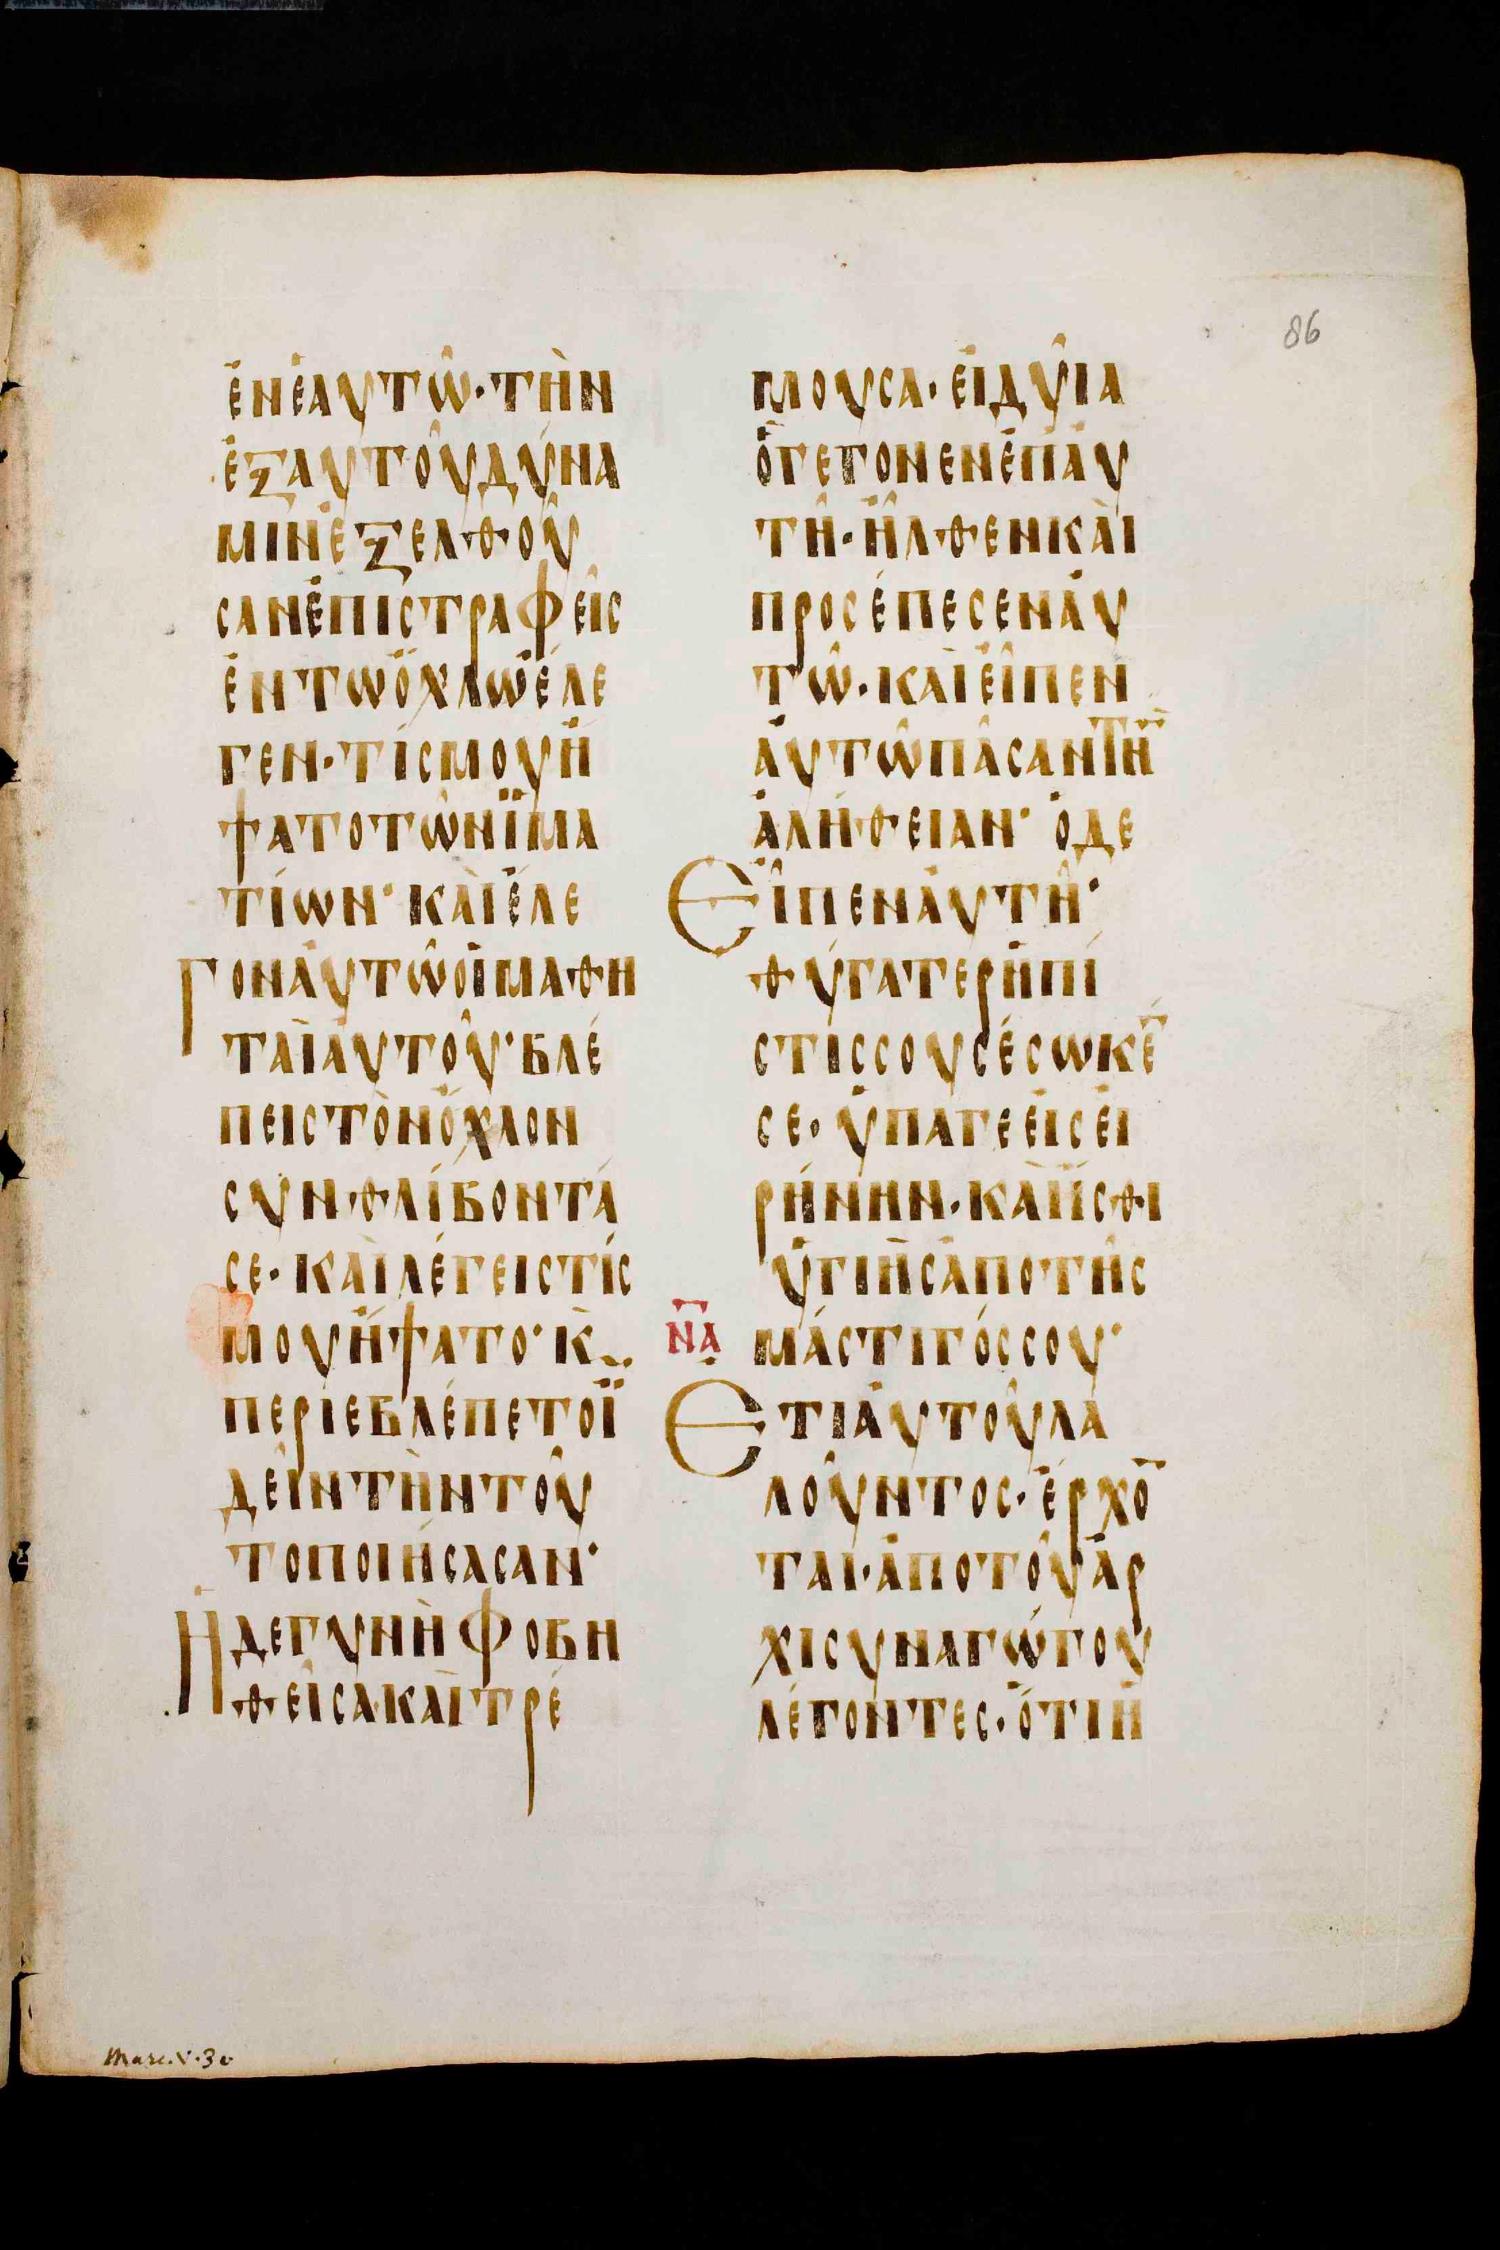 86
ἐν ἑαυτῶ· τὴν
ἐξ αὐτοῦ δύνα
μιν ἐξελθοῦ
σαν ἐπιστραφεὶς
ἐν τῶ ὄχλω ἔλε
γεν· τίς μου ἥ
ψατο τῶν ϊμα
τίων· καὶ ἔλε
Γον ἀυτῶ οἱ μαθη
ταὶ ἀυτοῦ· βλέ
πεις τὸν ὄχλον
συνθλίβοντά
σε· καὶ λέγεις τίς
μου ἥψατο· κ̀
περιεβλέπετο ϊ
δεῖν τὴν τοῦ
το ποιήσασαν·
Ἡ δε γυνὴ φοβη
θεῖσα καὶ τρέ
μουσα· εἰδυῖα
ὃ γέγονεν ἐπ ἀυ
τῆ· ἦλθεν καὶ
προσέπεσεν ἀυ
τῶ· καὶ εἶπεν
ἀυτῶ πᾶσαν τὴν
ἀλήθειαν· ὁ δε
Εἶπεν ἀυτῆ·
θύγατερ ἡ πί
στίς σου σέσωκέ
σε· ὕπαγε εἰς εἰ
ρήνην· καὶ ἴσθι
ὑγιὴς ἀπο τῆς
ΝΑ
μάστιγός σου·
Ετι ἀυτοῦ λα
λοῦντος· ἔρχο̅
ται· ἀπο τοῦ ἀρ
χισυναγώγου
λέγοντες· ὅτι ἡ
Marc. V. 30